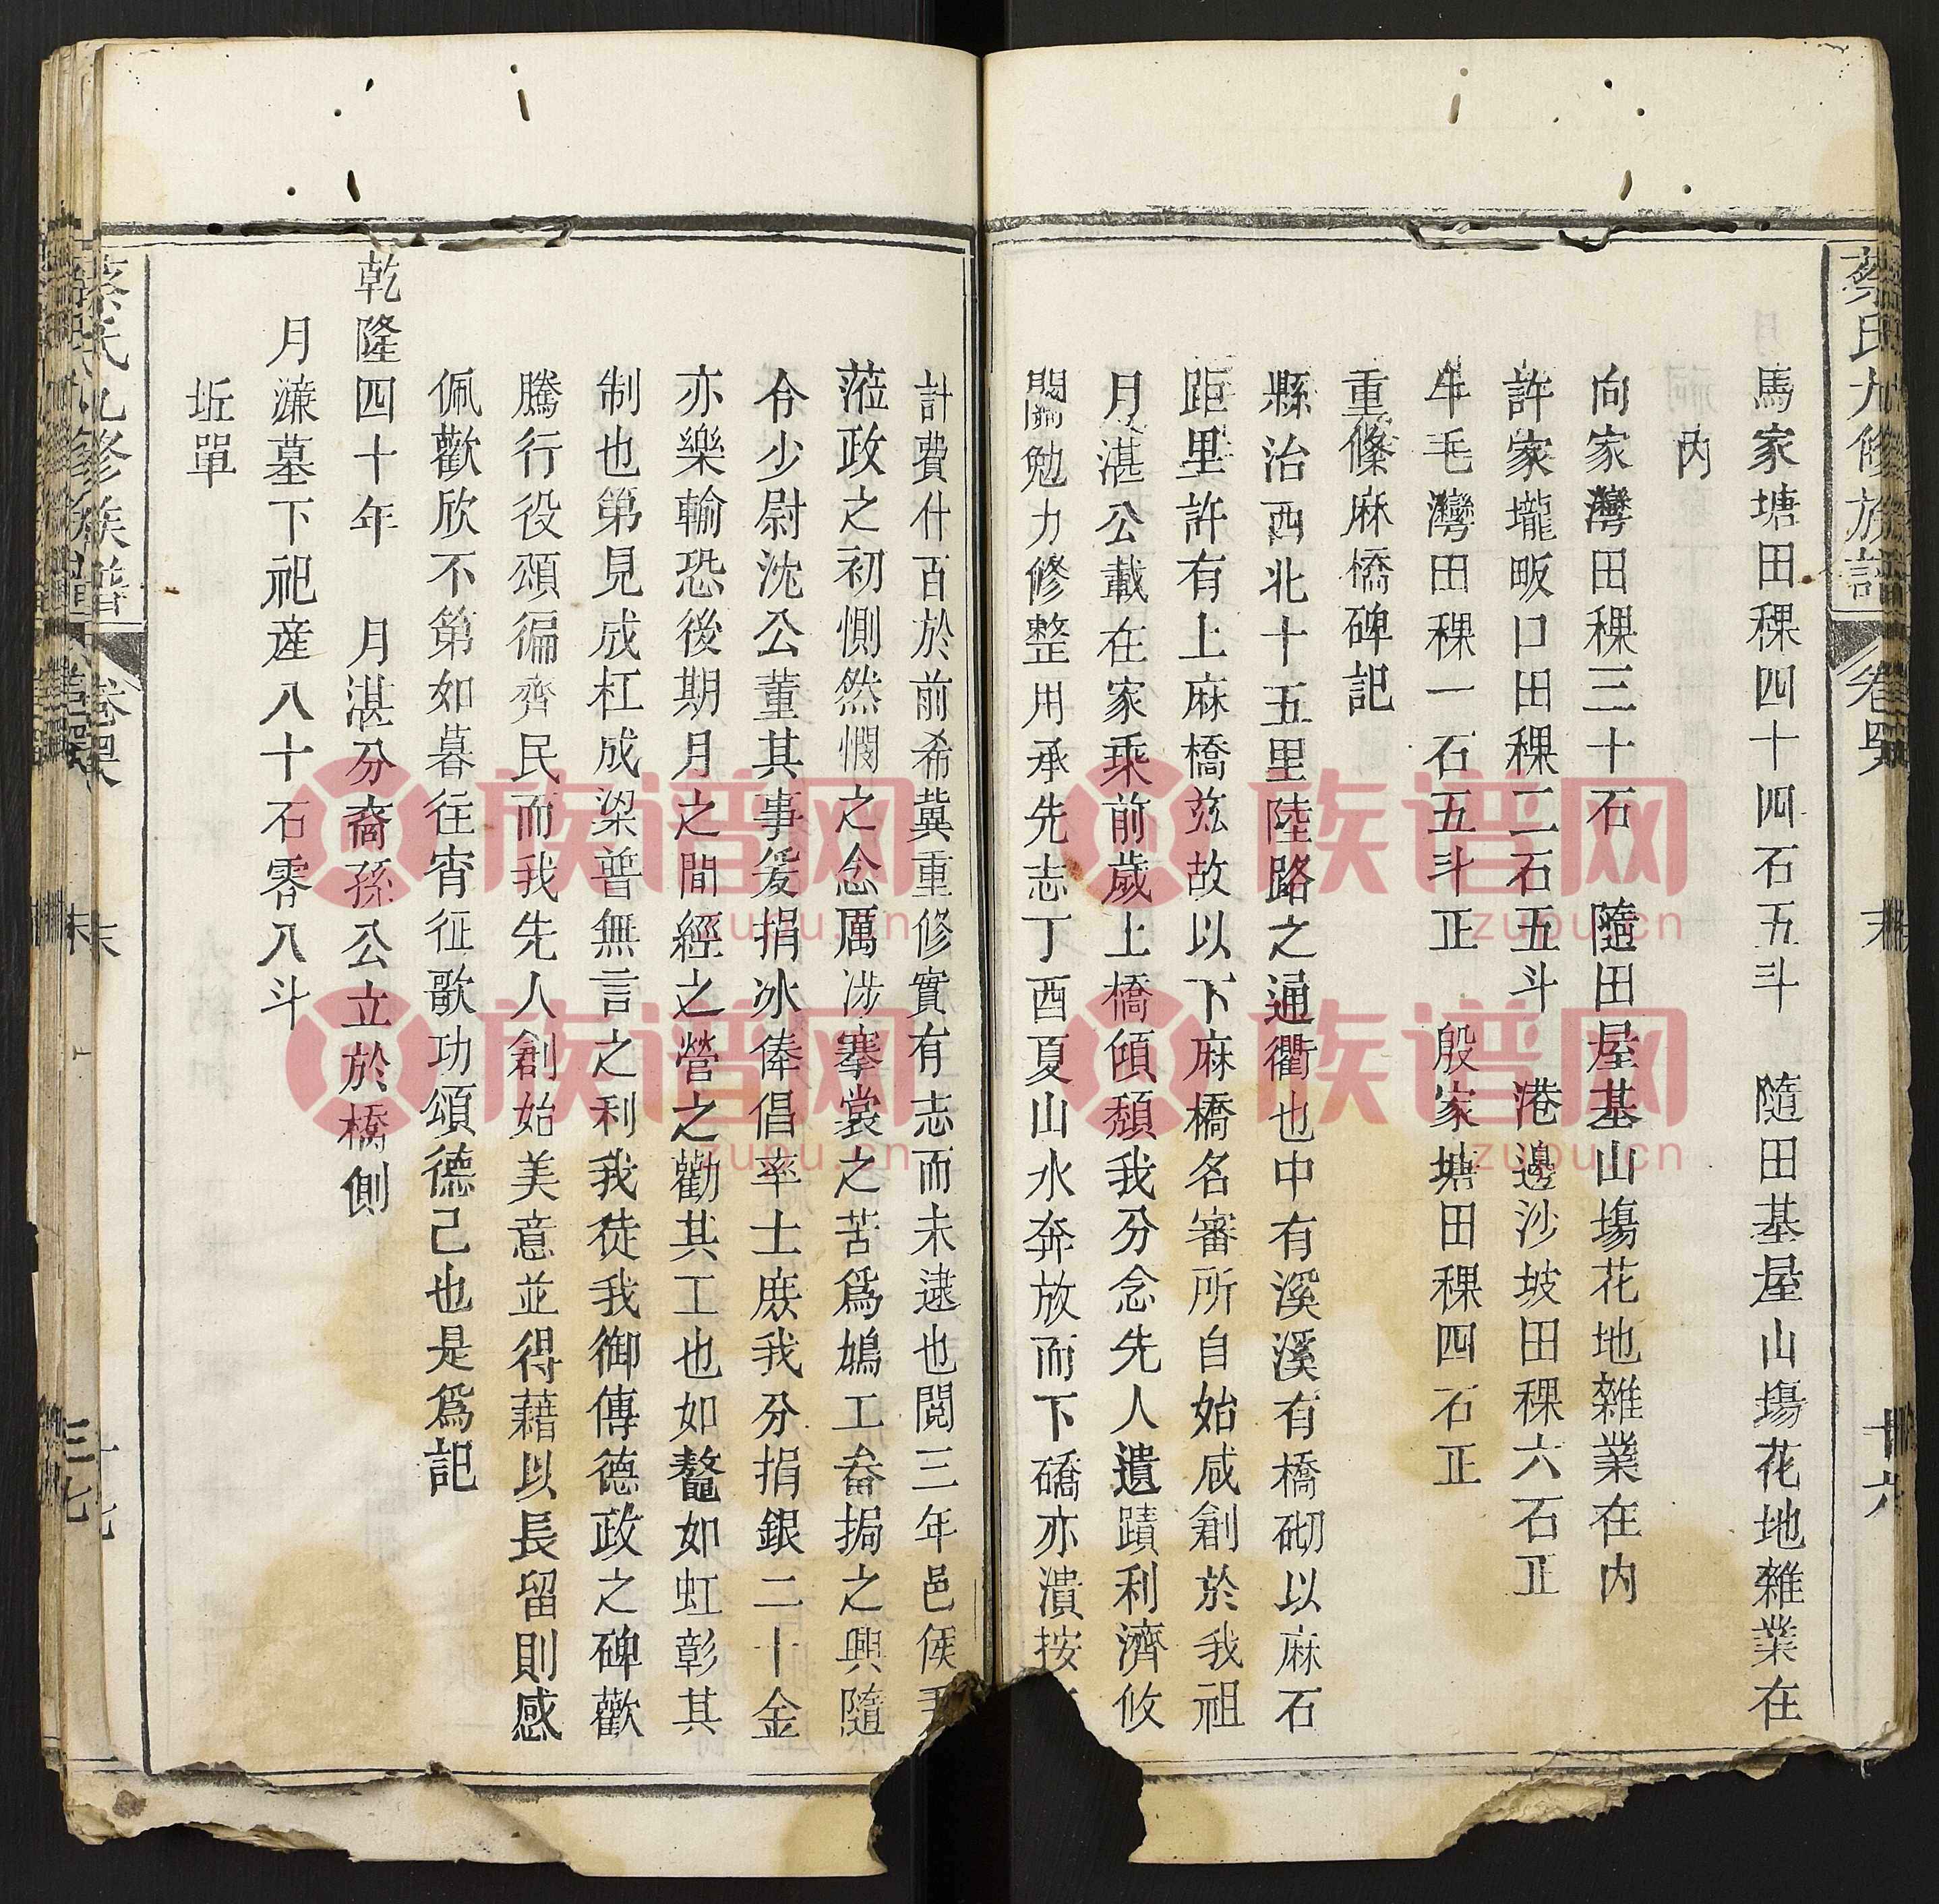 蔡氏九修族譜
卷
末
馬家塘田稞四十四石五斗　隨田基屋山塲花地雜業在
內
向家灣田稞三十石　隨田屋基山塲花地雜業在內
許家壠畈口田稞二石五斗　港邊沙坡田稞六石正
牛毛灣田稞一石五斗正　殷家塘田稞四石正
重修麻橋碑記
縣治西北十五里陸路之通衢也中有溪溪有橋砌以麻石
距里許有上麻橋茲故以下麻橋名審所自始咸創於我祖
月湛公載在家乘前歲上橋傾頽我分念先人遺蹟利濟攸
關勉力修整用承先志丁酉夏山水奔放而下礄亦潰按
計費什百於前希冀重修實有志而未逮也閱三年邑侯
蒞政之初惻然憫之念厲涉搴裳之苦爲鳩工畚挶之興隨
令少尉沈公董其事爰捐冰俸倡率士庶我分捐銀二十金
亦樂輸恐後期月之間經之營之勸其工也如鼇如虹彰其
制也第見成杠成梁普無言之利我徒我御傳德政之碑歡
騰行役頌徧齊民而我先人創始美意並得藉以長留則感
佩歡欣不第如暮往宵征歌功頌德己也是爲記
乾隆四十年　月湛分裔孫公立於橋側
月濂墓下祀産八十石零八斗
坵單
蔡氏九修族譜
末
族谱网
zupu.cn
族谱网
zupu.cn
族谱网
zupu.cn
族谱网
zupu.cn